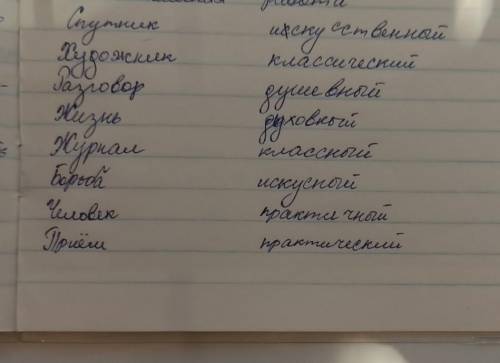 Спутник искусственный
Художник классический
Разговор душевный
Жизнь духовный
Журнал классный
Борьба искусный
Человек практичный
Приём практический